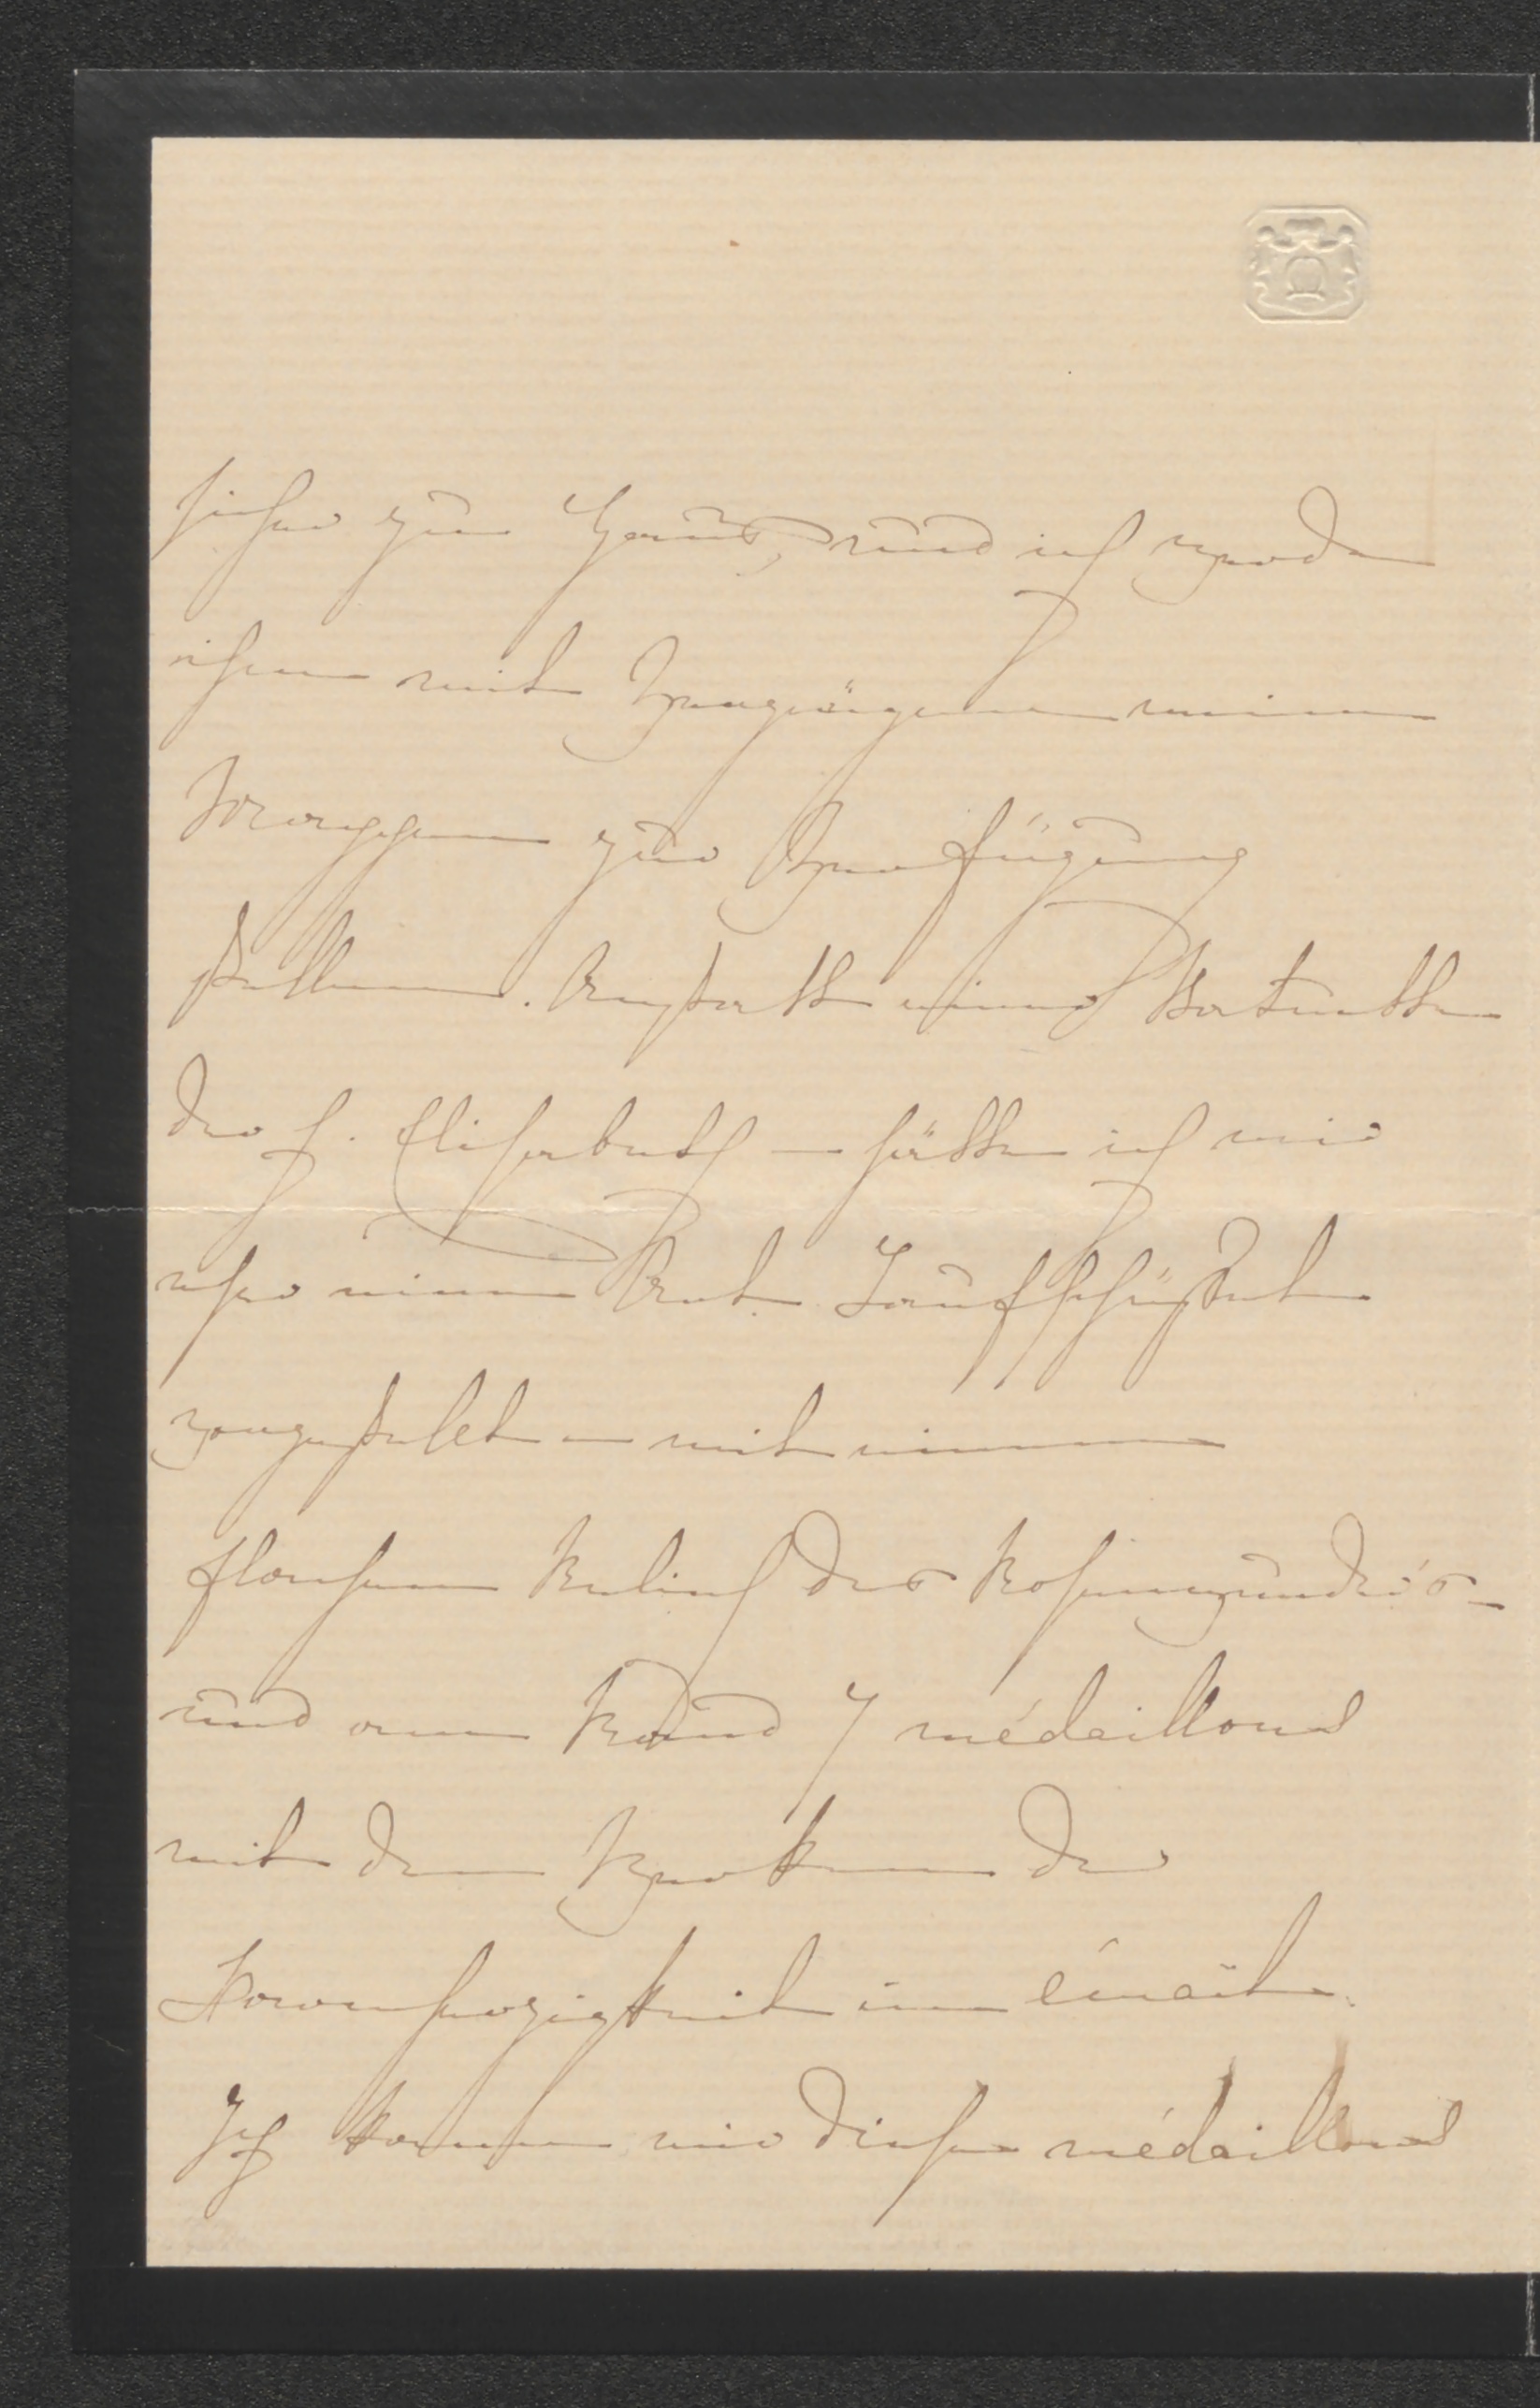 sicher zu Haus, und ich werde
ihm mit Vergnügen meinen
Wagen zur Verfügung
stellen. Anstatt einer Statuette
der h. Elisabeth – hätte ich mir
eher eine Art Taufschüssel
vorgestellt – mit einem
flachen Relief des Rosenwunders –
und am Rand 7 médaillons
mit den Werken der
Barmherzigkeit in émail.
Ich kann mir diese médaillons